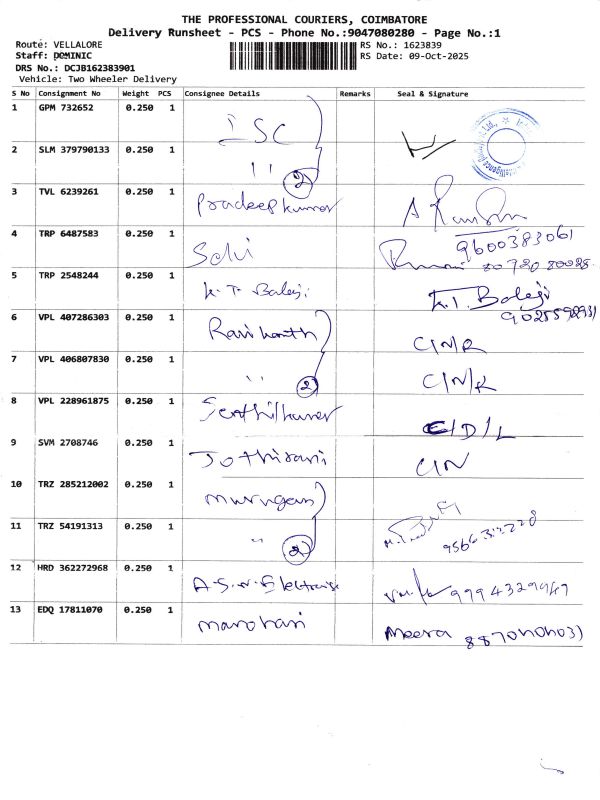 THE PROFESSIONAL COURIERS, COIMBATORE
Delivery Runsheet - PCS - Phone No.:9047080280 - Page No.:1
Route: VELLALORE RS No.: 1623839
Staff: DOMINIC RS Date: 09-Oct-2025
DRS No.: DCJB162383901
Vehicle: Two Wheeler Delivery
S No Consignment No Weight PCS Consignee Details Remarks Seal & Signature
1 GPM 732652 0.250 1 ISC
2 SLM 379790133 0.250 1 " 2
3 TVL 6239261 0.250 1 Pradeep kumar
4 TRP 6487583 0.250 1 Selvi 9600383061
5 TRP 2548244 0.250 1 K. T. Balaji K.T. Balaji
6 VPL 407286303 0.250 1 Ravikanth C/N/R
7 VPL 406807830 0.250 1 " 2 C/N/R
8 VPL 228961875 0.250 1 Senthilkumar D/L
9 SVM 2708746 0.250 1 Jothirani C/N
10 TRZ 285212002 0.250 1 Murugan
11 TRZ 54191313 0.250 1 " 2
12 HRD 362272968 0.250 1 A.S.N. 9994329949
13 EDQ 17811070 0.250 1 Manohari Meera